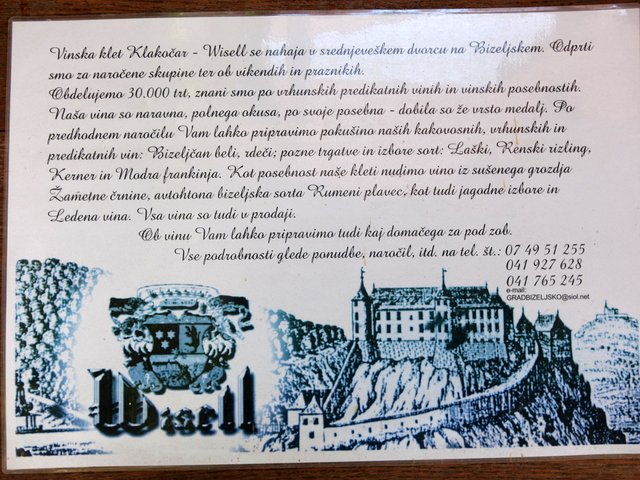 Vinska klet Klakočar - Wisell se nahaja v srednjeveškem dvorcu na Bizeljskem. Odprti
smo za naročene skupine ter ob vikendih in praznikih.
Obdelujemo 30.000 trt, znani smo po vrhunskih predikatnih vinih in vinskih posebnostih.
Naša vina so naravna, polnega okusa, po svoje posebna - dobila so že vrsto medalj. Po
predhodnem naročilu Vam lahko pripravimo pokušino naših kakovosnih, vrhunskih in
predikatnih vin: Bizeljčan beli, rdeči; pozne trgatve in izbore sort: Laški, Renski rizling,
Kerner in Modra frankinja. Kot posebnost naše kleti nudimo vino iz sušenega grozdja
Žametne črnine, avtohtona bizeljska sorta Rumeni plavec, kot tudi jagodne izbore in
Ledena vina. Vsa vina so tudi v prodaji.
Ob vinu Vam lahko pripravimo tudi kaj domačega za pod zob.
Vse podrobnosti glede ponudbe, naročil, itd. na tel. št.: 07 49 51 255
041 927 628
041 765 245
e-mail:
GRADBIZELJSKO@siol.net
Wisell